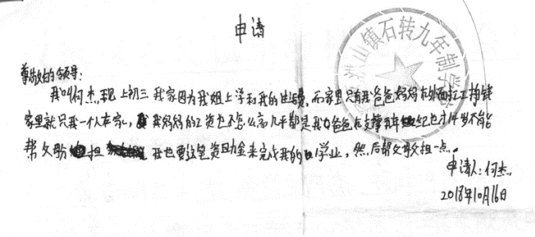 申请
尊敬的领导：
我叫何杰，现上初三 我家因为我姐上学和我的生活费，而家里只有我爸爸妈妈在外面打工挣钱
家里就只我一个人在家，我妈妈的工资也不怎么高几乎都是我爸爸在支撑 我 纪也才14岁不能
帮父母 担 我也要这笔资助金来完成我的学业，然后帮父母担一点。
申请人：何杰
2018年10月16日
山镇石转九年制学